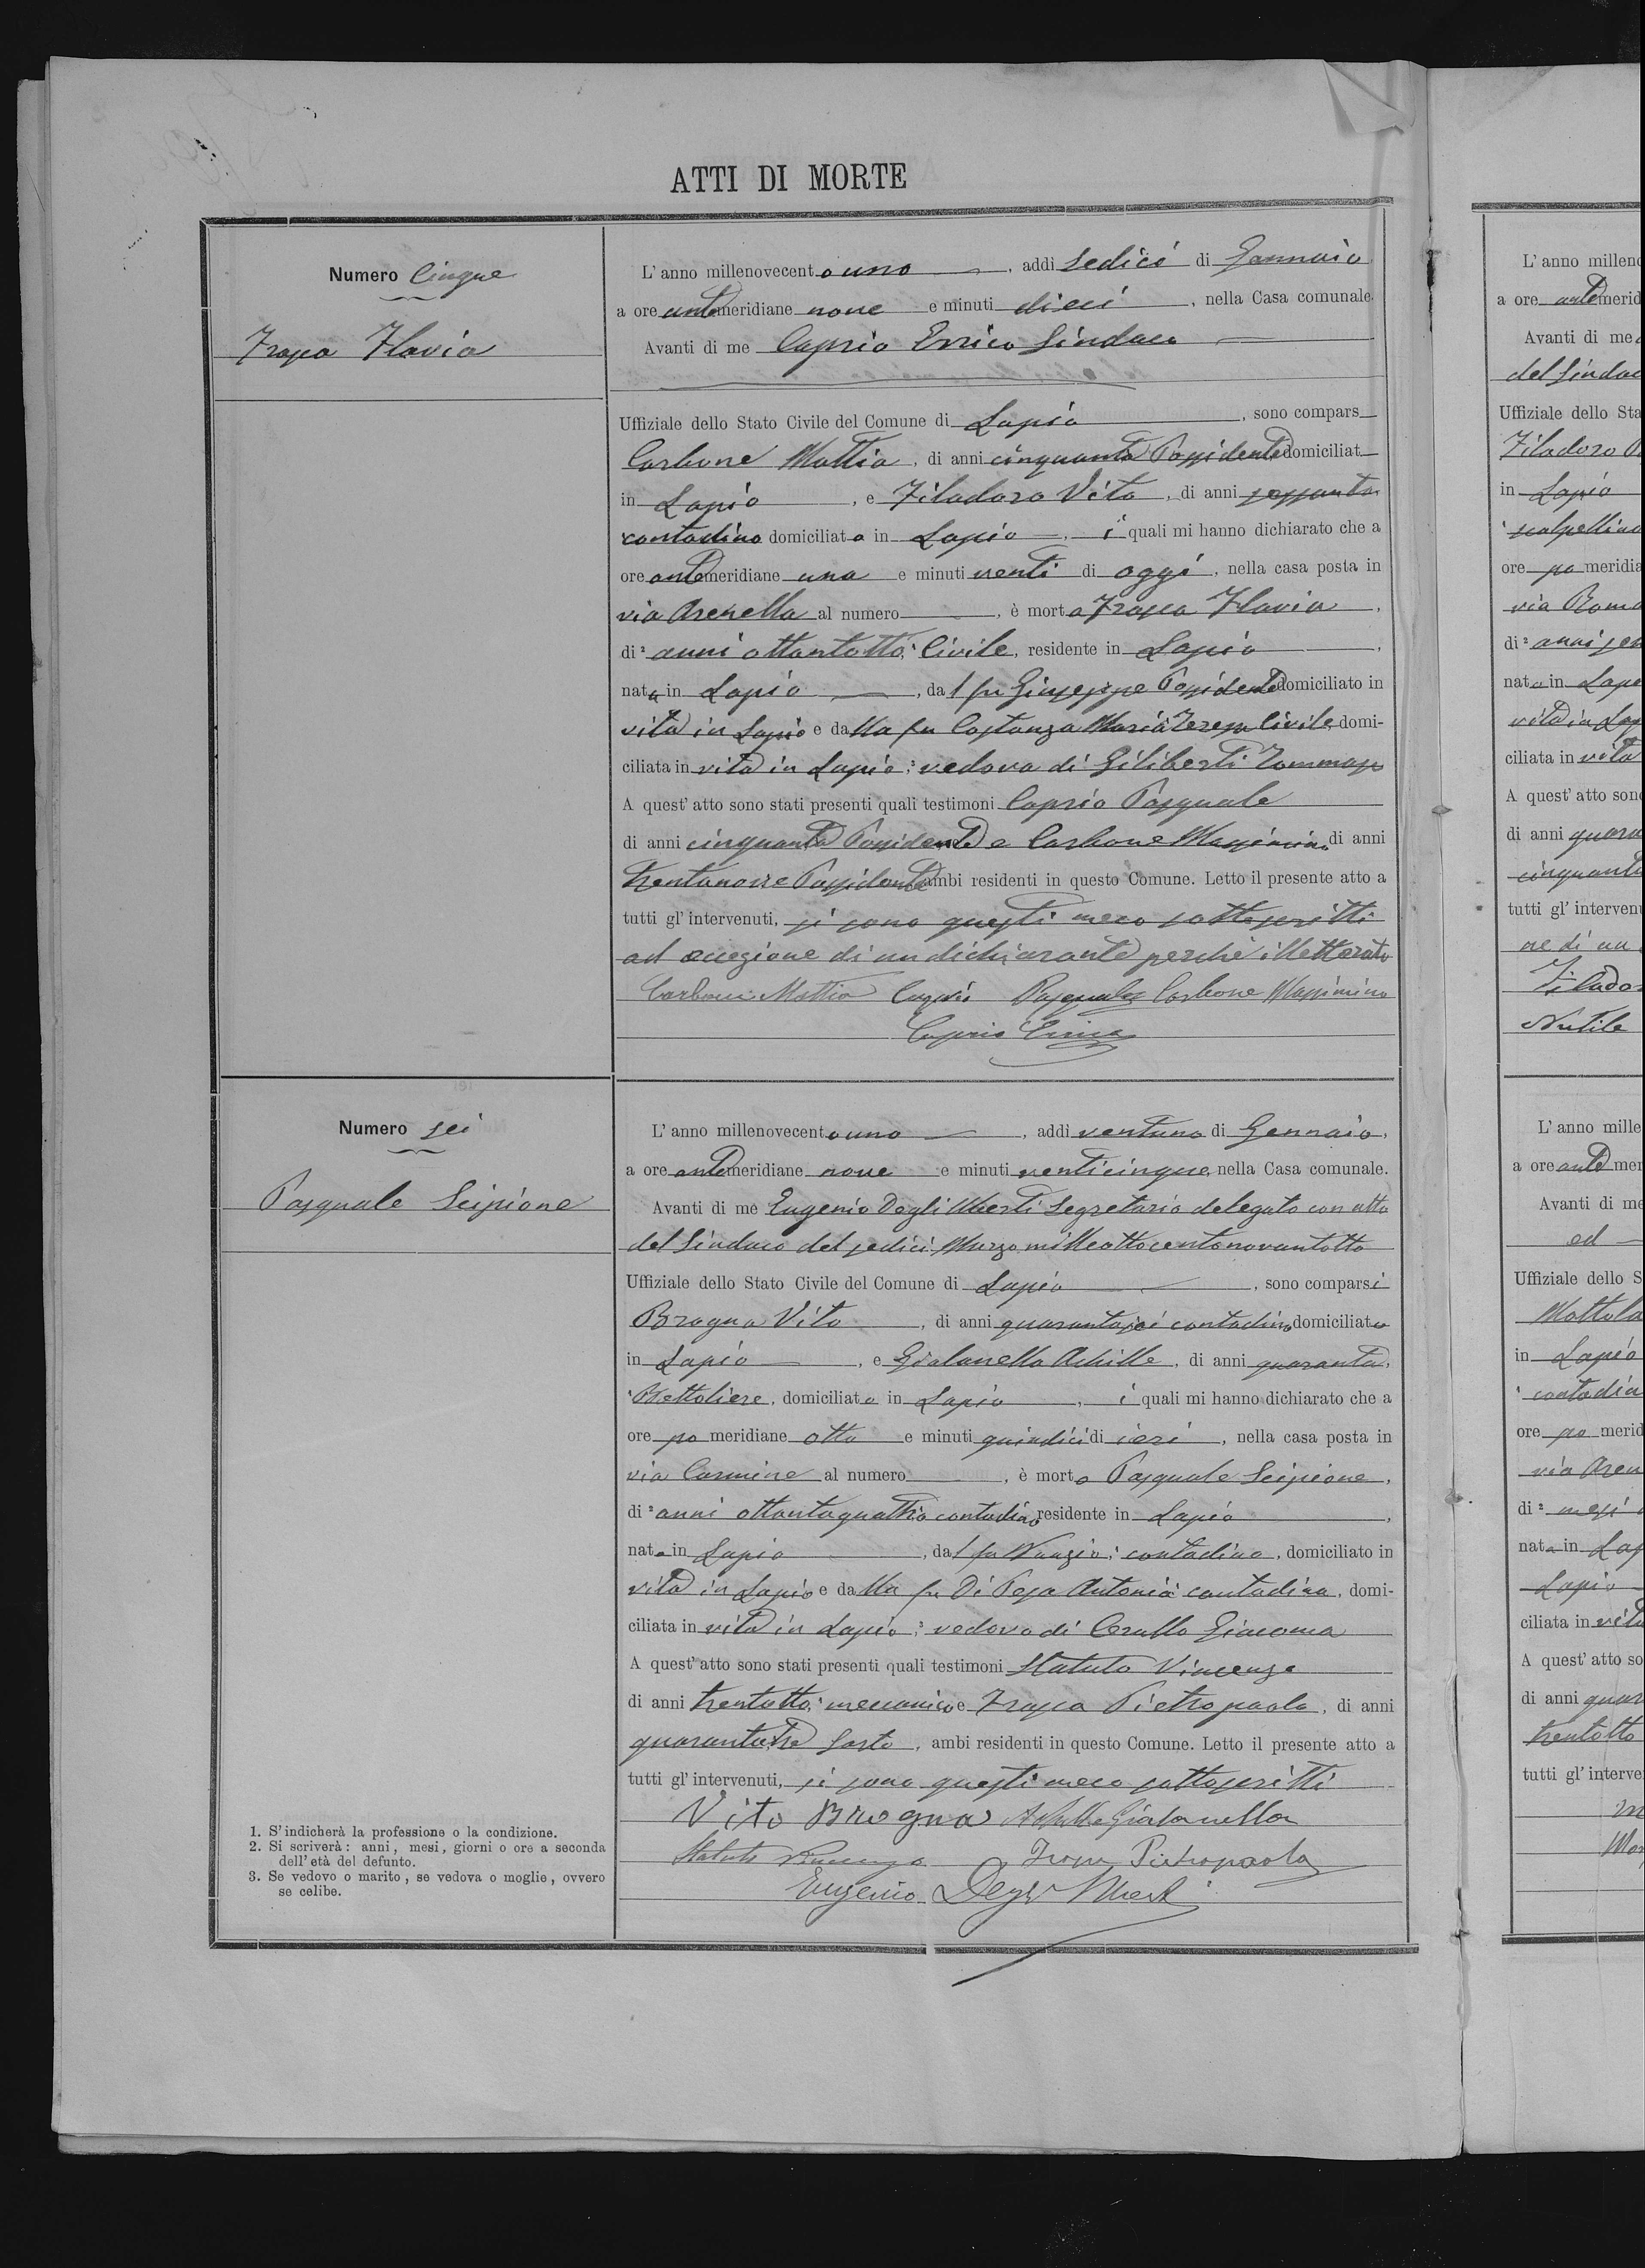 ATTI DI MORTE
Numero Cinque
Frasca Flavia
L'anno millenovecento uno, addì sedici di Gennaio
a ore antemeridiane nove e minuti dieci, nella Casa comunale.
Avanti di me Caprio Errico Sindaco
Uffiziale dello Stato Civile del Comune di Lapio, sono compars
Carbone Mattia, di anni cinquanta Possidente domiciliat
in Lapio, e Filadoro Vito, di anni sessanta
contadino domiciliato in Lapio, i quali mi hanno dichiarato che a
ore antemeridiane una e minuti venti di oggi, nella casa posta in
via Arenella al numero, è morta Frasca Flavia,
di ² anni ottantotto, ¹ Civile, residente in Lapio,
nata in Lapio, dal fu Giuseppe Possidente domiciliato in
vita in Lapio e dalla fu Costanza Maria Teresa Civile, domi-
ciliata in vita in Lapio; ³ vedova di Giliberti Tommaso
A quest'atto sono stati presenti quali testimoni Caprio Pasquale
di anni cinquanta Possidente e Carbone Massimino di anni
trentanove Possidente ambi residenti in questo Comune. Letto il presente atto a
tutti gl'intervenuti, si sono questi meco sottoscritti
ad eccezione di un dichiarante perchè illetterato
Carbone Mattia Caprio Pasquale Carbone Massimino
Caprio Errico
Numero sei
Pasquale Scipione
L'anno millenovecento uno, addì ventuno di Gennaio,
a ore antemeridiane nove e minuti venticinque, nella Casa comunale.
Avanti di me Eugenio Degli Uberti Segretario delegato con atto
del Sindaco del sedici Marzo milleottocentonovantotto
Uffiziale dello Stato Civile del Comune di Lapio, sono comparsi
Brogna Vito, di anni quarantasei contadino domiciliato
in Lapio, e Gialanella Achille, di anni quaranta,
¹ Bettoliere, domiciliato in Lapio, i quali mi hanno dichiarato che a
ore pomeridiane otto e minuti quindici di ieri, nella casa posta in
via Carmine al numero, è morto Pasquale Scipione,
di ² anni ottantaquattro contadino residente in Lapio,
nato in Lapio, dal fu Nunzio, ¹ contadino, domiciliato in
vita in Lapio e dalla fu Di Pesa Antonia contadina, domi-
ciliata in vita in Lapio; ³ vedovo di Cerullo Giacoma
A quest'atto sono stati presenti quali testimoni Statuto Vincenzo
di anni trentotto, ¹ meccanico e Frasca Pietropaolo, di anni
quarantatre Sarto, ambi residenti in questo Comune. Letto il presente atto a
tutti gl'intervenuti, si sono questi meco sottoscritti
Vito Brogna Achille Gialanella
Statuto Vincenzo Frasca Pietropaolo
Eugenio Degli Uberti
1. S'indicherà la professione o la condizione.
2. Si scriverà: anni, mesi, giorni o ore a seconda
dell'età del defunto.
3. Se vedovo o marito, se vedova o moglie, ovvero
se celibe.
L'anno milleno
a ore antemerid
Avanti di me
del Sindac
Uffiziale dello Sta
Filadoro
in Lapio
¹ scalpellino
ore po meridia
via Roma
di ² anni
nata in Lapi
vita in Lap
ciliata in vita
A quest'atto sono
di anni quara
cinquanta
tutti gl'interven
ne di un
Filador
Nutile
L'anno mille
a ore antemer
Avanti di me
ed
Uffiziale dello S
Mottola
in Lapio
¹ contadin
ore po merid
via Aren
di ² mesi
nata in Lap
Lapio
ciliata in vita
A quest'atto so
di anni quar
trentotto
tutti gl'interve